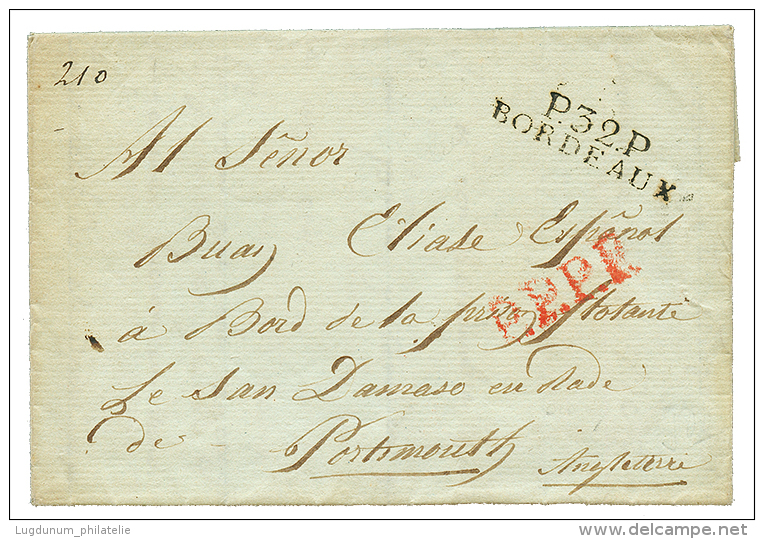 210
P.32.P
BORDEAUX
Al Señor
Eliade Español
á Bord de la prison flotante
Le San Damaso en Rade
de Portsmouth
Angleterre
Lugdunum_philatelie
delcampe.net